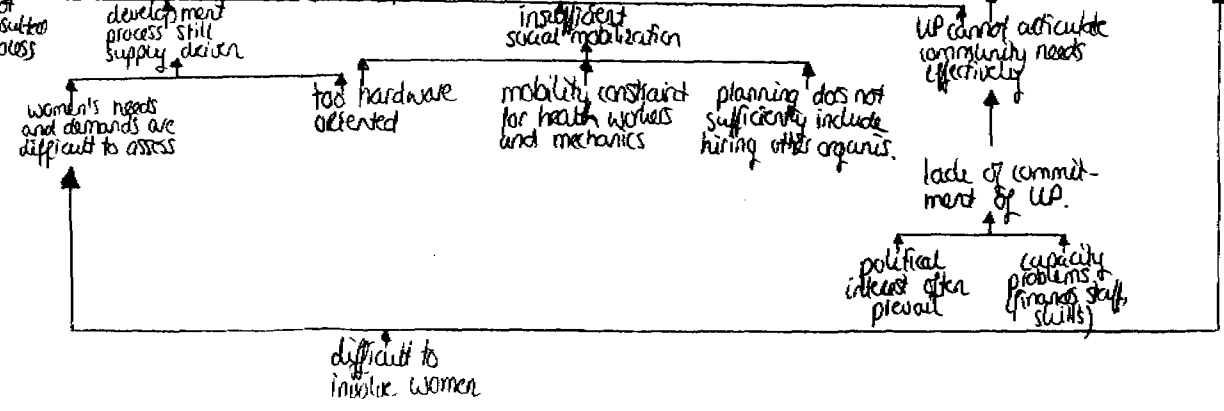 development
process still
supply driven
insufficient
social mobilization
UP cannot articulate
community needs
effectively
women's needs
and demands are
difficult to assess
too hardware
oriented
mobility constraint
for health workers
and mechanics
planning does not
sufficiently include
hiring other organis.
lack of commit-
ment of UP.
political
interest often
prevail
capacity
problems
(finance, staff,
skills)
difficult to
involve women